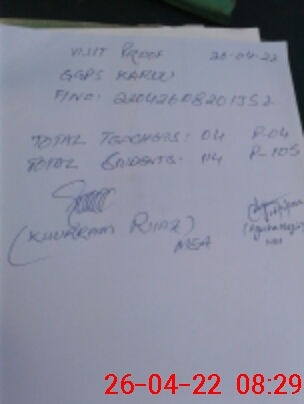 VISIT PROOF 26-04-22
GGPS KARLU
F/NO: 220426082013S2
TOTAL TEACHERS: 04 P-04
TOTAL STUDENTS: 114 P-105
(KHURRAM RIAZ)
MEA
26-04-22 08:29